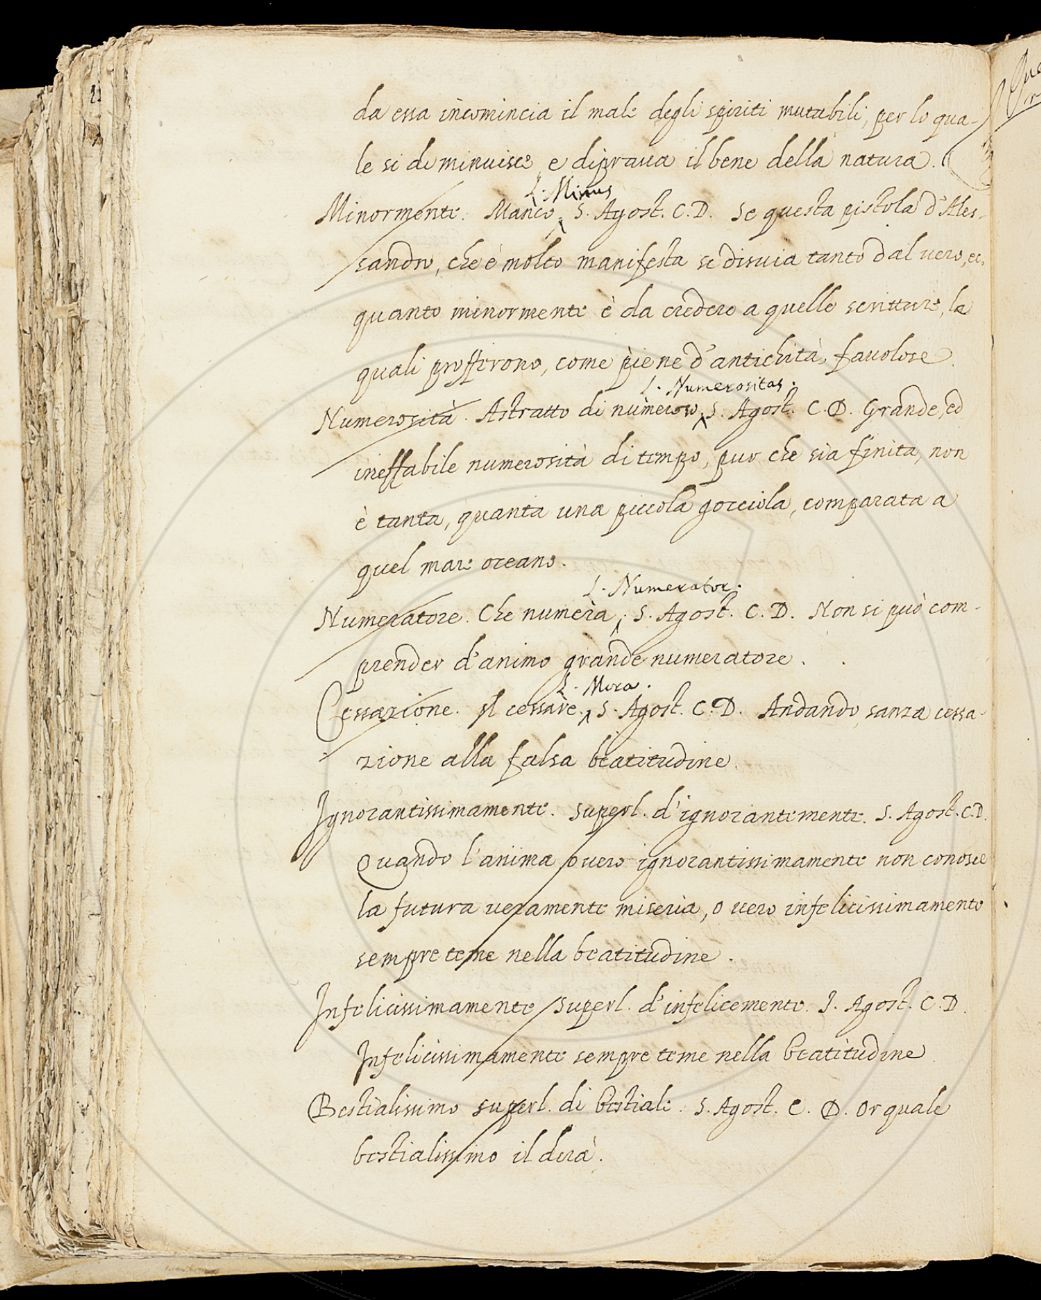 da essa incomincia il male degli spiriti mutabili, per lo qua-
le si di minuisce e diprava il bene della natura.
L. Minus
Minormente. Manco, S. Agost. C. D. Se questa pistola d'Ales-
sandro, che è molto manifesta se disvia tanto dal vero, ec.
quanto minormente è da credere a quelle scritture, la
quali profferono, come piene d'antichità, favolose.
L. Numerositas.
Numerosità. Astratto di numeroso, S. Agost. C. D. Grande, ed
ineffabile numerosità di tempo, pur che sia finita, non
è tanta, quanta una piccola gocciola, comparata a
quel mare oceano.
L. Numerator.
Numeratore. Che numera, S. Agost. C. D. Non si può com-
prender d'animo grande numeratore.
L. Mora.
Cessazione. Il cessare. S. Agost. C. D. Andando, sanza cessa-
zione alla falsa beatitudine.
Ignorantissimamente. Superl. d'ignorantemente. S. Agost. C. D.
Quando l'anima, overo ignorantissimamente non conosce
la futura veramente miseria, o vero infelicissimamente
sempre teme nella beatitudine.
Infelicissimamente Superl. d'infelicemente. S. Agost. C. D.
Infelicissimamente sempre teme nella beatitudine
Bestialissimo superl. di bestiale. S. Agost. C. D. Or quale
bestialissimo il dirà.